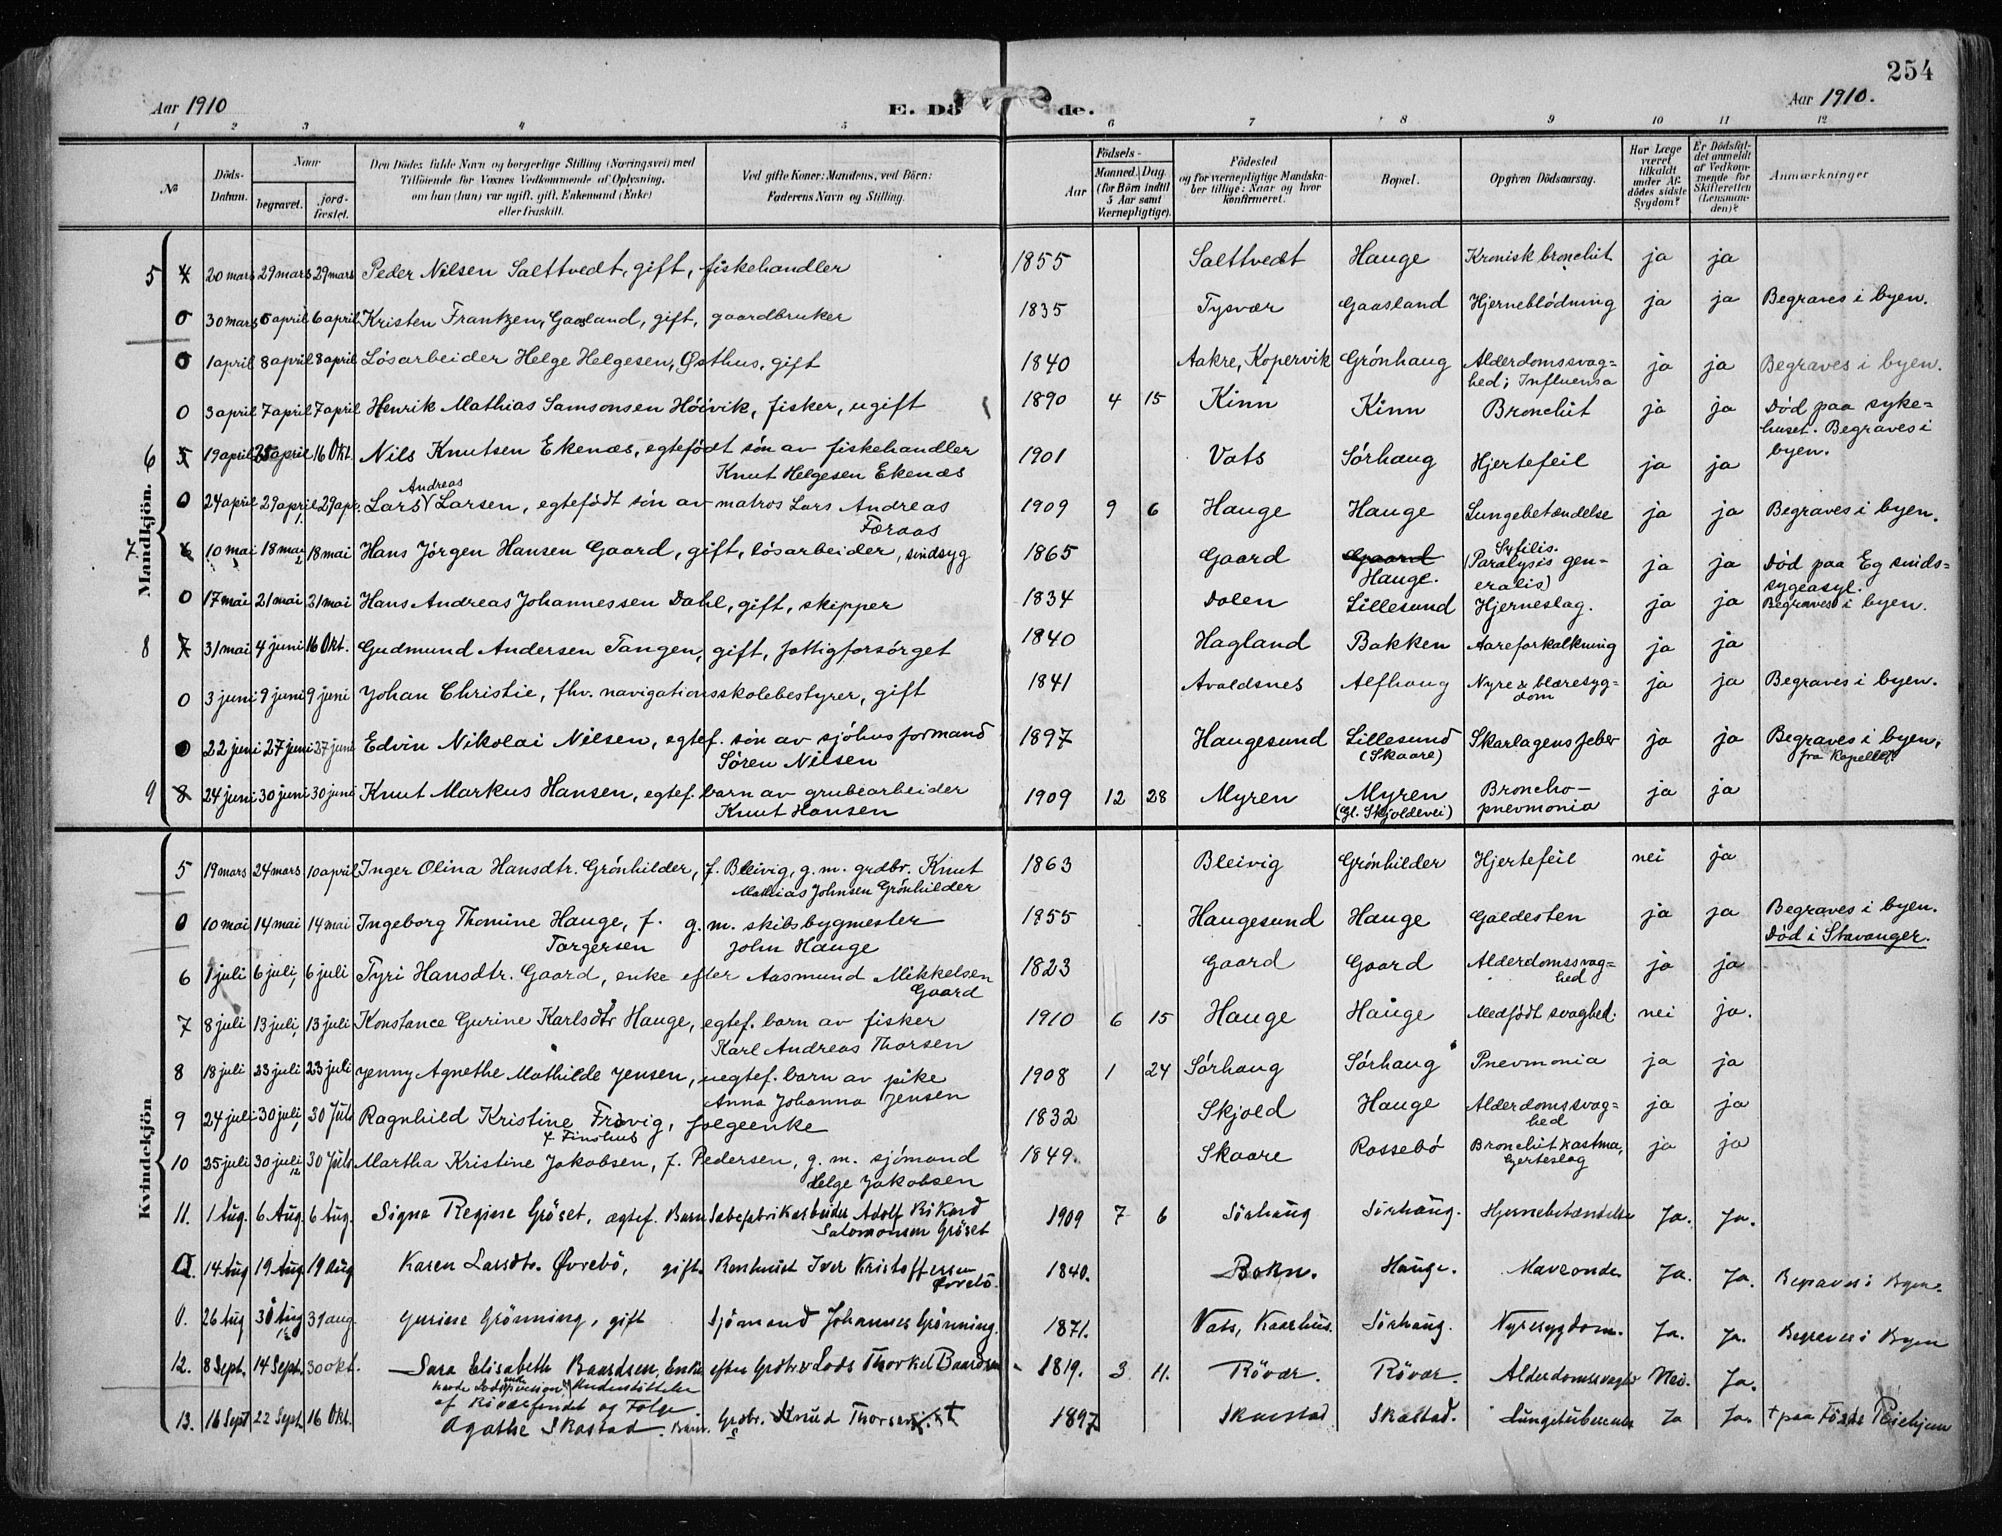 254
Aar 1910 E. Dö de. Aar 1910.
1 2 3 4 5 6 7 8 9 10 11 12
№ Döds-Datum. Naar begravet. jord-fæstet. Den Dödes fulde Navn og borgerlige Stilling (Næringsvei) med Tilföiende for Voxnes Vedkommende af Oplysning, om han (hun) var ugift, gift, Enkemand (Enke) eller fraskilt. Ved gifte Koner: Mandens, ved Börn: Faderens Navn og Stilling. Aar Födsels- Maaned. Dag. (for Börn indtil 5 Aar samt Værnepligtige). Födested og for værnepligtige Mandskaber tillige: Naar og hvor konfirmeret. Bopæl. Opgiven Dödsaarsag. Har Læge været tilkaldt under Afdödes sidste Sygdom? Er Dödsfaldet anmeldt af Vedkommende for Skifteretten (Lensmanden)? Anmærkninger
Mandkjön.
5 4 20 mars 29 mars 29 mars Peder Nilsen Salttvedt, gift, fiskehandler 1855 Salttvedt Hauge Kronisk bronchit ja ja
0 30 mars 6 april 6 april Kristen Frantzen, Gaasland, gift, gaardbruker 1835 Tysvær Gaasland Hjerneblödning ja ja Begraves i byen.
0 1 april 8 april 8 april Lösarbeider Helge Helgesen, Østhus, gift 1840 Aakre, Kopervik Grönhaug Alderdomssvag= ja ja Begraves i byen.
hed; Influensa
0 3 april 7 april 7 april Henrik Mathias Samsonsen Höivik, fisker, ugift 1890 4 15 Kinn Kinn Bronchit ja ja Död paa syke=
huset. Begraves i
byen.
6 5 19 april 25 april 16 Okt. Nils Knutsen Ekenæs, egtefödt sön av fiskehandler 1901 Vats Sörhaug Hjertefeil ja ja
Knut Helgesen Ekenæs
Andreas
0 24 april 29 april 29 apr. Lars Larsen, egtefödt sön av matros Lars Andreas 1909 9 6 Hauge Hauge Lungebetændelse ja ja Begraves i byen.
Foraas
7 6 10 mai 18 mai 18 mai Hans Jörgen Hansen Gaard, gift, lösarbeider, sindsyg 1865 Gaard Gaard Hauge. Syfilis. (Paralysis gen- ja ja Död paa Eg sinds=
eralis) sygeasyl.
0 17 mai 21 mai 21 mai Hans Andreas Johannessen Dahl, gift, skipper 1834 Dalen Lillesund Hjerneslag. ja ja Begraves i byen.
8 7 31 mai 4 juni 16 Okt. Gudmund Andersen Tangen, gift, fattigforsörget 1840 Hagland Bakken Aareforkalkning ja ja
0 3 juni 9 juni 9 juni Johan Christie, fhv. navigationsskolebestyrer, gift 1841 Avaldsnes Alfhaug Nyre & blæresyg= ja ja Begraves i byen.
dom
0 22 juni 27 juni 27 juni Edvin Nikolai Nilsen, egtef. sön av sjöhusformand 1897 Haugesund Lillesund Skarlagensfeber ja ja Begraves i byen,
Sören Nilsen (Skaare) fra kapellet
9 8 24 juni 30 juni 30 juni Knut Markus Hansen, egtef. barn av grubearbeider 1909 12 28 Myren Myren Broncho- ja ja
Knut Hansen (Gl. Skjoldevei) pnevmonia
Kvindekjön
5 19 mars 24 mars 10 april Inger Olina Hansdtr. Grönhilder, f. Bleivig, g. m. grdbr. Knut 1863 Bleivig Grönhilder Hjertefeil nei ja
Mathias Johnsen Grönhilder
0 10 mai 14 mai 14 mai Ingeborg Thomine Hauge, f. g. m. skibsbygmester 1855 Haugesund Hauge Galdesten ja ja Begraves i byen.
Torgersen John Hauge Död i Stavanger.
6 1 juli 6 juli 6 juli Tyri Hansdtr. Gaard, enke efter Aasmund Mikkelsen 1823 Gaard Gaard Alderdomssvag= ja ja
Gaard hed
7 8 juli 13 juli 13 juli Konstance Gurine Karlsdtr Hauge, egtef. barn av fisker 1910 6 15 Hauge Hauge Medfödt svaghed. nei ja.
Karl Andreas Thorsen
8 18 juli 23 juli 23 juli Jenny Agnethe Mathilde Jensen, uegtef. barn av pike 1908 1 24 Sörhaug Sörhaug Pnevmonia ja ja
Anna Johanna Jensen
9 24 juli 30 juli 30 Juli Ragnhild Kristine Frövig, folgeenke 1832 Skjold Hauge Alderdomssvag= ja ja
hed
10 25 juli 30 juli 30 Juli Martha Kristine Jakobsen, f. Pedersen, g. m. sjömand 1849. Skaare Rossebö Bronchit & astma, ja ja
Helge Jakobsen Hjerteslag
11. 1 Aug. 6 Aug. 6 Aug. Signe Regine Gröset, ægtef. Barn Sæbefabrikarbeider Adolf Rikard 1909 7 6 Sörhaug Sörhaug. Hjernebetændelse Ja. Ja.
Salomonsen Gröset
0. 14 Aug 19 Aug 19 Aug Karen Larsdtr. Øvrebö, gift. Iver Kristoffersen 1840. Bokn. Hauge. Maveonde Ja. Ja. Begraves i Byen.
Øvrebö.
0. 26 Aug 30 Aug 31 aug. Gurine Grönning, gift Sjömand Johannes Grönning. 1871. Vats, Sörhaug. Nyresygdom. Ja. Ja. Begraves i Byen
12. 8 Sept. 14 Sept. 30 okt. Sara Elisabeth Baardsen, Enke efter Grdbr & Lods Thorkel Baardsen 1819. 3 11. Rövær. Rövær. Alderdomssvaghed Nei. Ja.
havde Lodspension & Understöttelse
af Röværfondet og Folge
13. 16 Sept 22 Sept. 16 Okt. Agathe Skastad. Barn. Grdbr. Knud Thorsen 1897 Skaestad Skastad. Lungetuberculose Ja Ja. † paa Pleiehjem